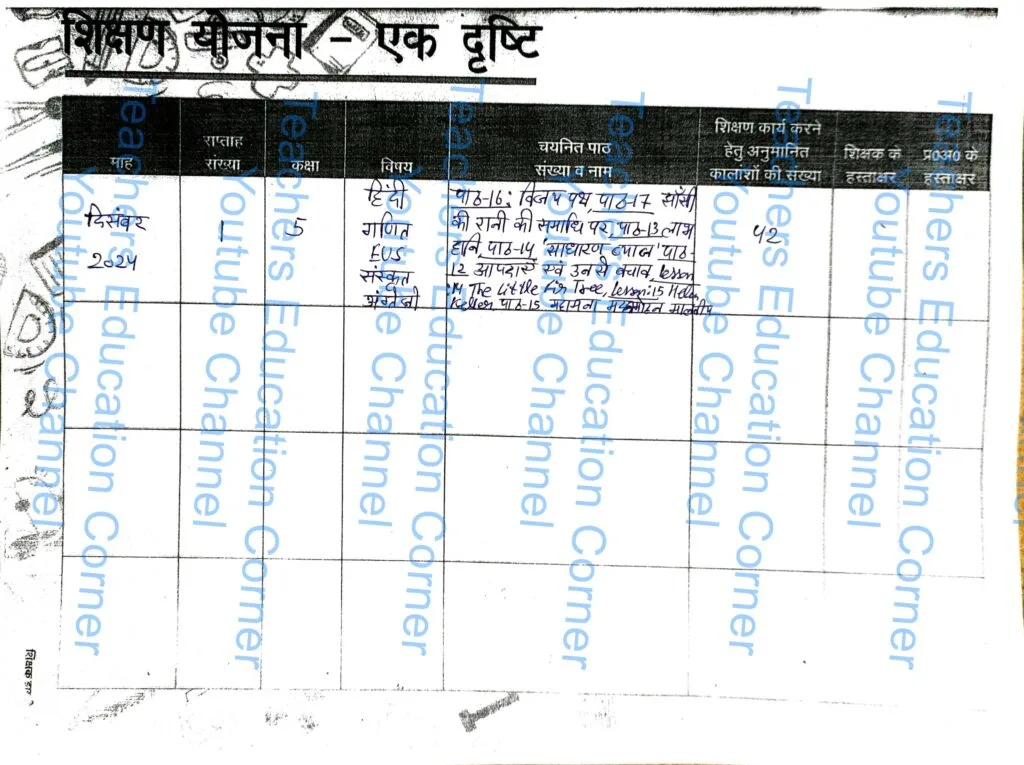 शिक्षण योजना - एक दृष्टि
माह
सप्ताह संख्या
कक्षा
विषय
चयनित पाठ संख्या व नाम
शिक्षण कार्य करने हेतु अनुमानित कालाशों की संख्या
शिक्षक के हस्ताक्षर
प्र०अ० के हस्ताक्षर
दिसंबर
2024
1
5
हिंदी
गणित
EUS
संस्कृत
अंग्रेजी
पाठ-16: विजय पथ, पाठ-17 झाँसी
की रानी की समाधि पर, पाठ-13 लाभ
हानि, पाठ-14 'साधारण ब्याज' पाठ-
12 आपदाएँ एवं उनसे बचाव, Lesson
:14 The Little Fir Tree, Lesson:15 Helen
Keller, पाठ-15 महामना मदनमोहन मालवीय
42
Teachers Education Corner
Youtube Channel
Teachers Education Corner
Youtube Channel
Teachers Education Corner
Youtube Channel
Teachers Education Corner
Youtube Channel
Teachers Education Corner
Youtube Channel
Teachers Education Corner
Youtube Channel